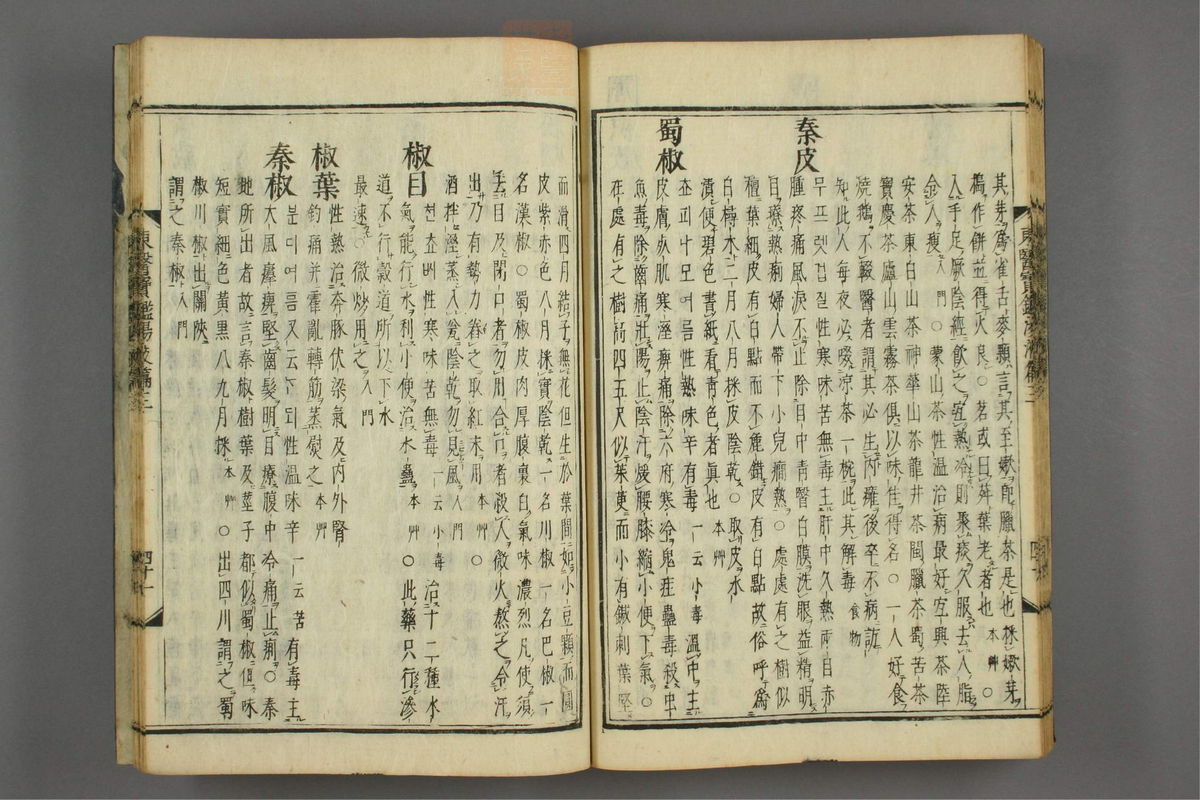 其芽爲雀舌麥顆言其至嫰卽臘茶是也採嫰芽
搗作餅並得火良○茗或曰荈葉老者也本艸○
入手足厥陰經飮之宜熱冷則聚痰久服去人脂
令人瘦入門○蒙山茶性溫治病最好宜興茶陸
安茶東白山茶神華山茶龍井茶閩臘茶蜀苦茶
寶慶茶廬山雲霧茶俱以味佳得名○一人好食
燒鵝不輟醫者謂其必生內癰後卒不病訪
知此人每夜必啜凉茶一椀此其解毒食物
秦皮
무프렛겁질性寒味苦無毒主肝中久熱兩目赤
腫疼痛風淚不止除目中靑瞖白膜洗眼益精明
目療熱痢婦人帶下小兒癎熱○處處有之樹似
檀葉細皮有白點而不麁錯皮有白點故俗呼爲
白樳木二月八月採皮陰乾○取皮水
漬便碧色書紙看靑色者眞也本艸
蜀椒
쵸피나모여름性熱味辛有毒一云小毒溫中主
皮膚死肌寒溼痹痛除六府寒冷鬼疰蠱毒殺虫
魚毒除齒痛壯陽止陰汗煖腰膝縮小便下氣○
在處有之樹高四五尺似茱萸而小有鍼刺葉堅
而滑四月結子無花但生於葉間如小豆顆而圓
皮紫赤色八月採實陰乾一名川椒一名巴椒一
名漢椒○蜀椒皮肉厚腹裏白氣味濃烈凡使須
去目及閉口者勿用合口者殺人微火熬之令汗
出乃有勢力舂之取紅末用本艸○
酒拌溼蒸入瓮陰乾勿見風入門
椒目
천쵸삐性寒味苦無毒一云小毒治十二種水
氣能行水利小便治水蠱本艸○此藥只行滲
道不行穀道所以下水
最速○微炒用之入門
椒葉
性熱治奔豚伏梁氣及內外腎
釣痛并霍亂轉筋蒸熨之本艸
秦椒
분디여름又云난듸性溫味辛一云苦有毒主
大風癱瘓堅齒髮明目療腹中冷痛止痢○秦
地所出者故言秦椒樹葉及莖子都似蜀椒但味
短實細色黃黑八九月採本艸○出四川謂之蜀
椒川椒出關陝
謂之秦椒入門